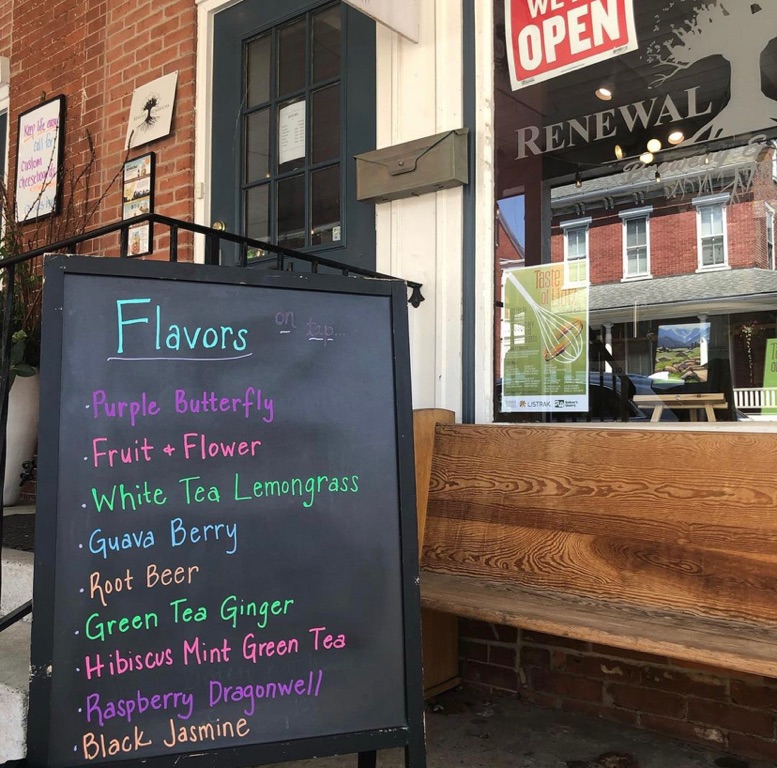 WE'RE
OPEN
RENEWAL
Keep life easy
Call for
Custom
Cheeseboards
Taste
of
LISTRAK
Flavors on tap...
·Purple Butterfly
·Fruit + Flower
·White Tea Lemongrass
·Guava Berry
·Root Beer
·Green Tea Ginger
·Hibiscus Mint Green Tea
·Raspberry Dragonwell
·Black Jasmine